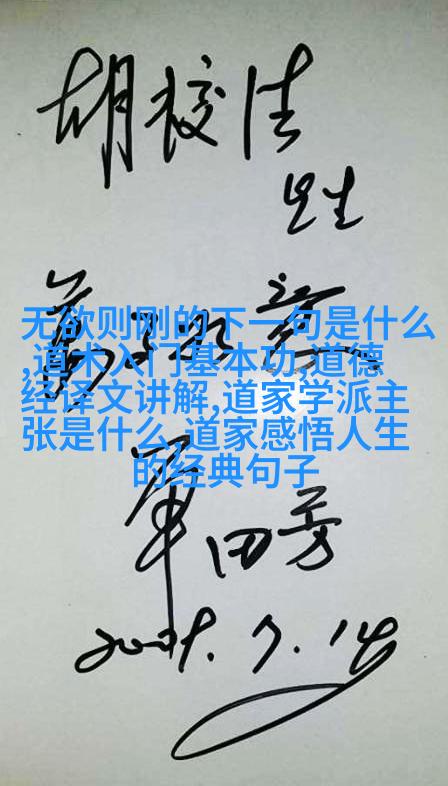 胡校
先生
无欲则刚的下一句是什么
,道术入门基本功,道德
经译文讲解,道家学派主
张是什么,道家感悟人生
的经典句子
单田芳